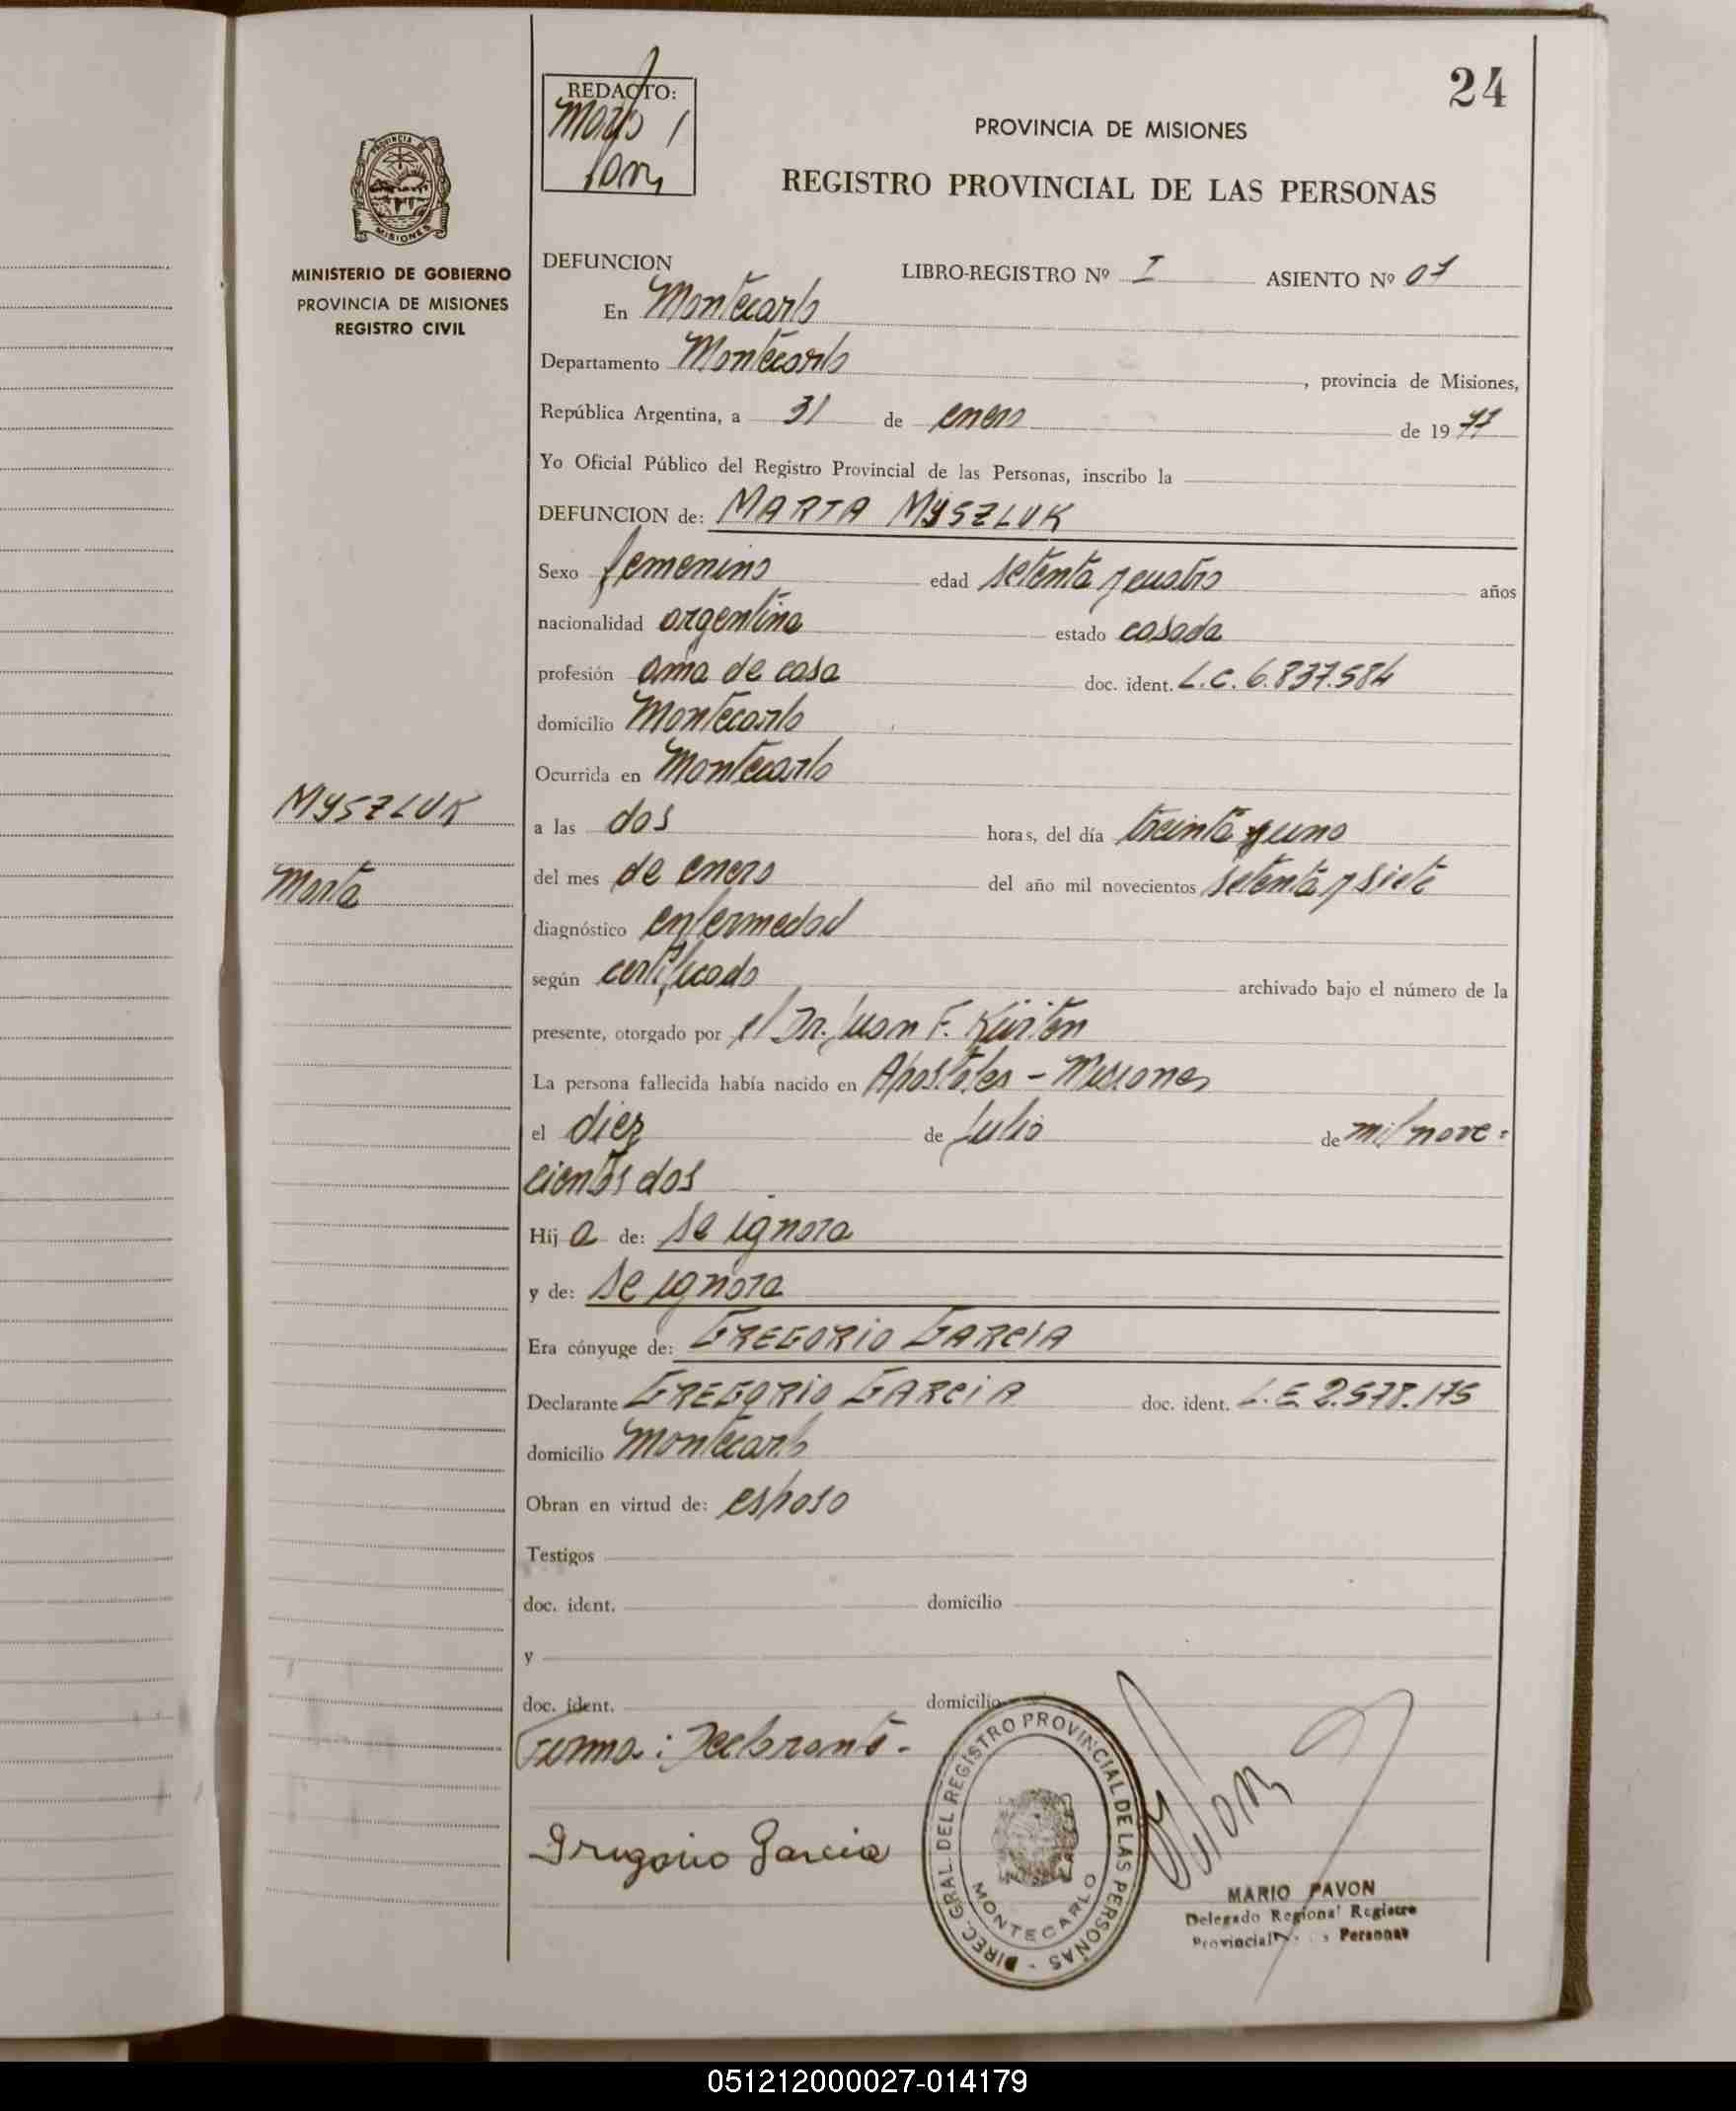 24
REDACTO:
PROVINCIA DE MISIONES
REGISTRO PROVINCIAL DE LAS PERSONAS
PROVINCIA DE
MISIONES
MINISTERIO DE GOBIERNO
PROVINCIA DE MISIONES
REGISTRO CIVIL
DEFUNCION LIBRO-REGISTRO Nº I ASIENTO Nº 07
En Montecarlo
Departamento Montecarlo, provincia de Misiones,
República Argentina, a 31 de enero de 1977
Yo Oficial Público del Registro Provincial de las Personas, inscribo la
DEFUNCION de: MARTA MYSZLUK
Sexo femenino edad setenta y cuatro años
nacionalidad argentina estado casada
profesión ama de casa doc. ident. L.C. 6.837.584
domicilio Montecarlo
Ocurrida en Montecarlo
MYSZLUK
Marta
a las dos horas, del día treinta y uno
del mes de enero del año mil novecientos setenta y siete
diagnóstico enfermedad
según certificado archivado bajo el número de la
presente, otorgado por el Dr. Juan F. Kürten
La persona fallecida había nacido en Apóstoles - Misiones
el diez de Julio de mil nove=
cientos dos
Hija de: se ignora
y de: se ignora
Era cónyuge de: GREGORIO GARCIA
Declarante GREGORIO GARCIA doc. ident. L.E. 2.578.175
domicilio Montecarlo
Obran en virtud de: esposo
Testigos
doc. ident. domicilio
y
doc. ident. domicilio
Firma: Declarante.
Gregorio Garcia
DIREC. GRAL. DEL REGISTRO PROVINCIAL DE LAS PERSONAS -
MONTECARLO
MARIO PAVON
Delegado Regional Registro
Provincial Personas
051212000027-014179